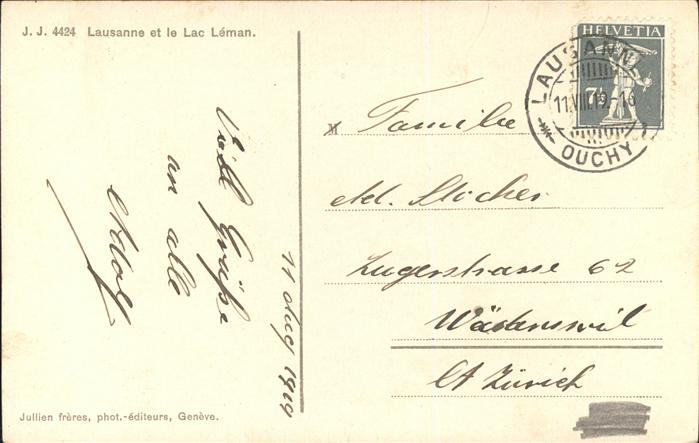 J. J. 4424 Lausanne et le Lac Léman.
Viele Grüße
an alle
Adolf
11 Aug 1919
Jullien frères, phot.-éditeurs, Genève.
HELVETIA
7½
LAUSANNE
11.VIII.19.-16
OUCHY
Familie
Ad. Stocker
Zugerstrasse 62
Wädenswil
Ct Zürich